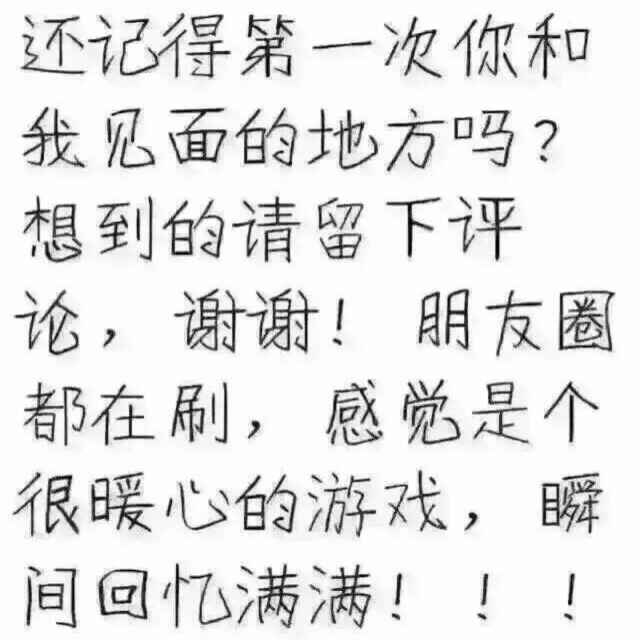 还记得第一次你和
我见面的地方吗?
想到的请留下评
论，谢谢! 朋友圈
都在刷，感觉是个
很暖心的游戏，瞬
间回忆满满! ! !